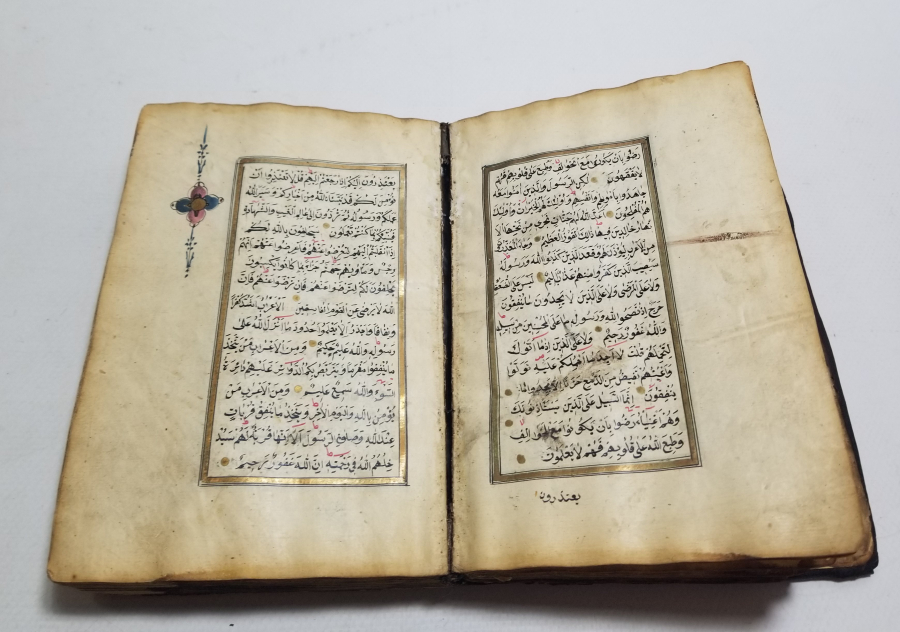 رضوا بان يكونوا مع الخوالف وطبع على قلوبهم فهم
لا يفقهون لكن الرسول والذين امنوا معه
جاهدوا باموالهم وانفسهم واولئك لهم الخيرات واولئك
هم المفلحون اعد الله لهم جنات تجري من تحتها الا
نهار خالدين فيها ذلك الفوز العظيم وجاء المعذرون
من الاعراب ليؤذن لهم وقعد الذين كذبوا الله ورسوله
سيصيب الذين كفروا منهم عذاب اليم ليس على الضعفاء
ولا على المرضى ولا على الذين لا يجدون ما ينفقون
حرج اذا نصحوا لله ورسوله ما على المحسنين من سبيل
والله غفور رحيم ولا على الذين اذا ما اتوك
لتحملهم قلت لا اجد ما احملكم عليه تولوا
واعينهم تفيض من الدمع حزنا الا يجدوا ما
ينفقون انما السبيل على الذين يستأذنونك
وهم اغنياء رضوا بان يكونوا مع الخوالف
وطبع الله على قلوبهم فهم لا يعلمون
يعتذرون
يعتذرون اليكم اذا رجعتم اليهم قل لا تعتذروا لن
نؤمن لكم قد نبأنا الله من اخباركم وسيرى الله
عملكم ورسوله ثم تردون الى عالم الغيب والشهادة
فينبئكم بما كنتم تعملون سيحلفون بالله لكم
اذا انقلبتم اليهم لتعرضوا عنهم فاعرضوا عنهم انهم
رجس ومأويهم جهنم جزاء بما كانوا يكسبون
يحلفون لكم لترضوا عنهم فان ترضوا عنهم فان
الله لا يرضى عن القوم الفاسقين الاعراب اشد كفرا
ونفاقا واجدر الا يعلموا حدود ما انزل الله على
رسوله والله عليم حكيم ومن الاعراب من يتخذ
ما ينفق مغرما ويتربص بكم الدوائر عليهم دائرة
السوء والله سميع عليم ومن الاعراب من
يؤمن بالله واليوم الاخر ويتخذ ما ينفق قربات
عند الله وصلوات الرسول الا انها قربة لهم سيد
خلهم الله في رحمته ان الله غفور رحيم